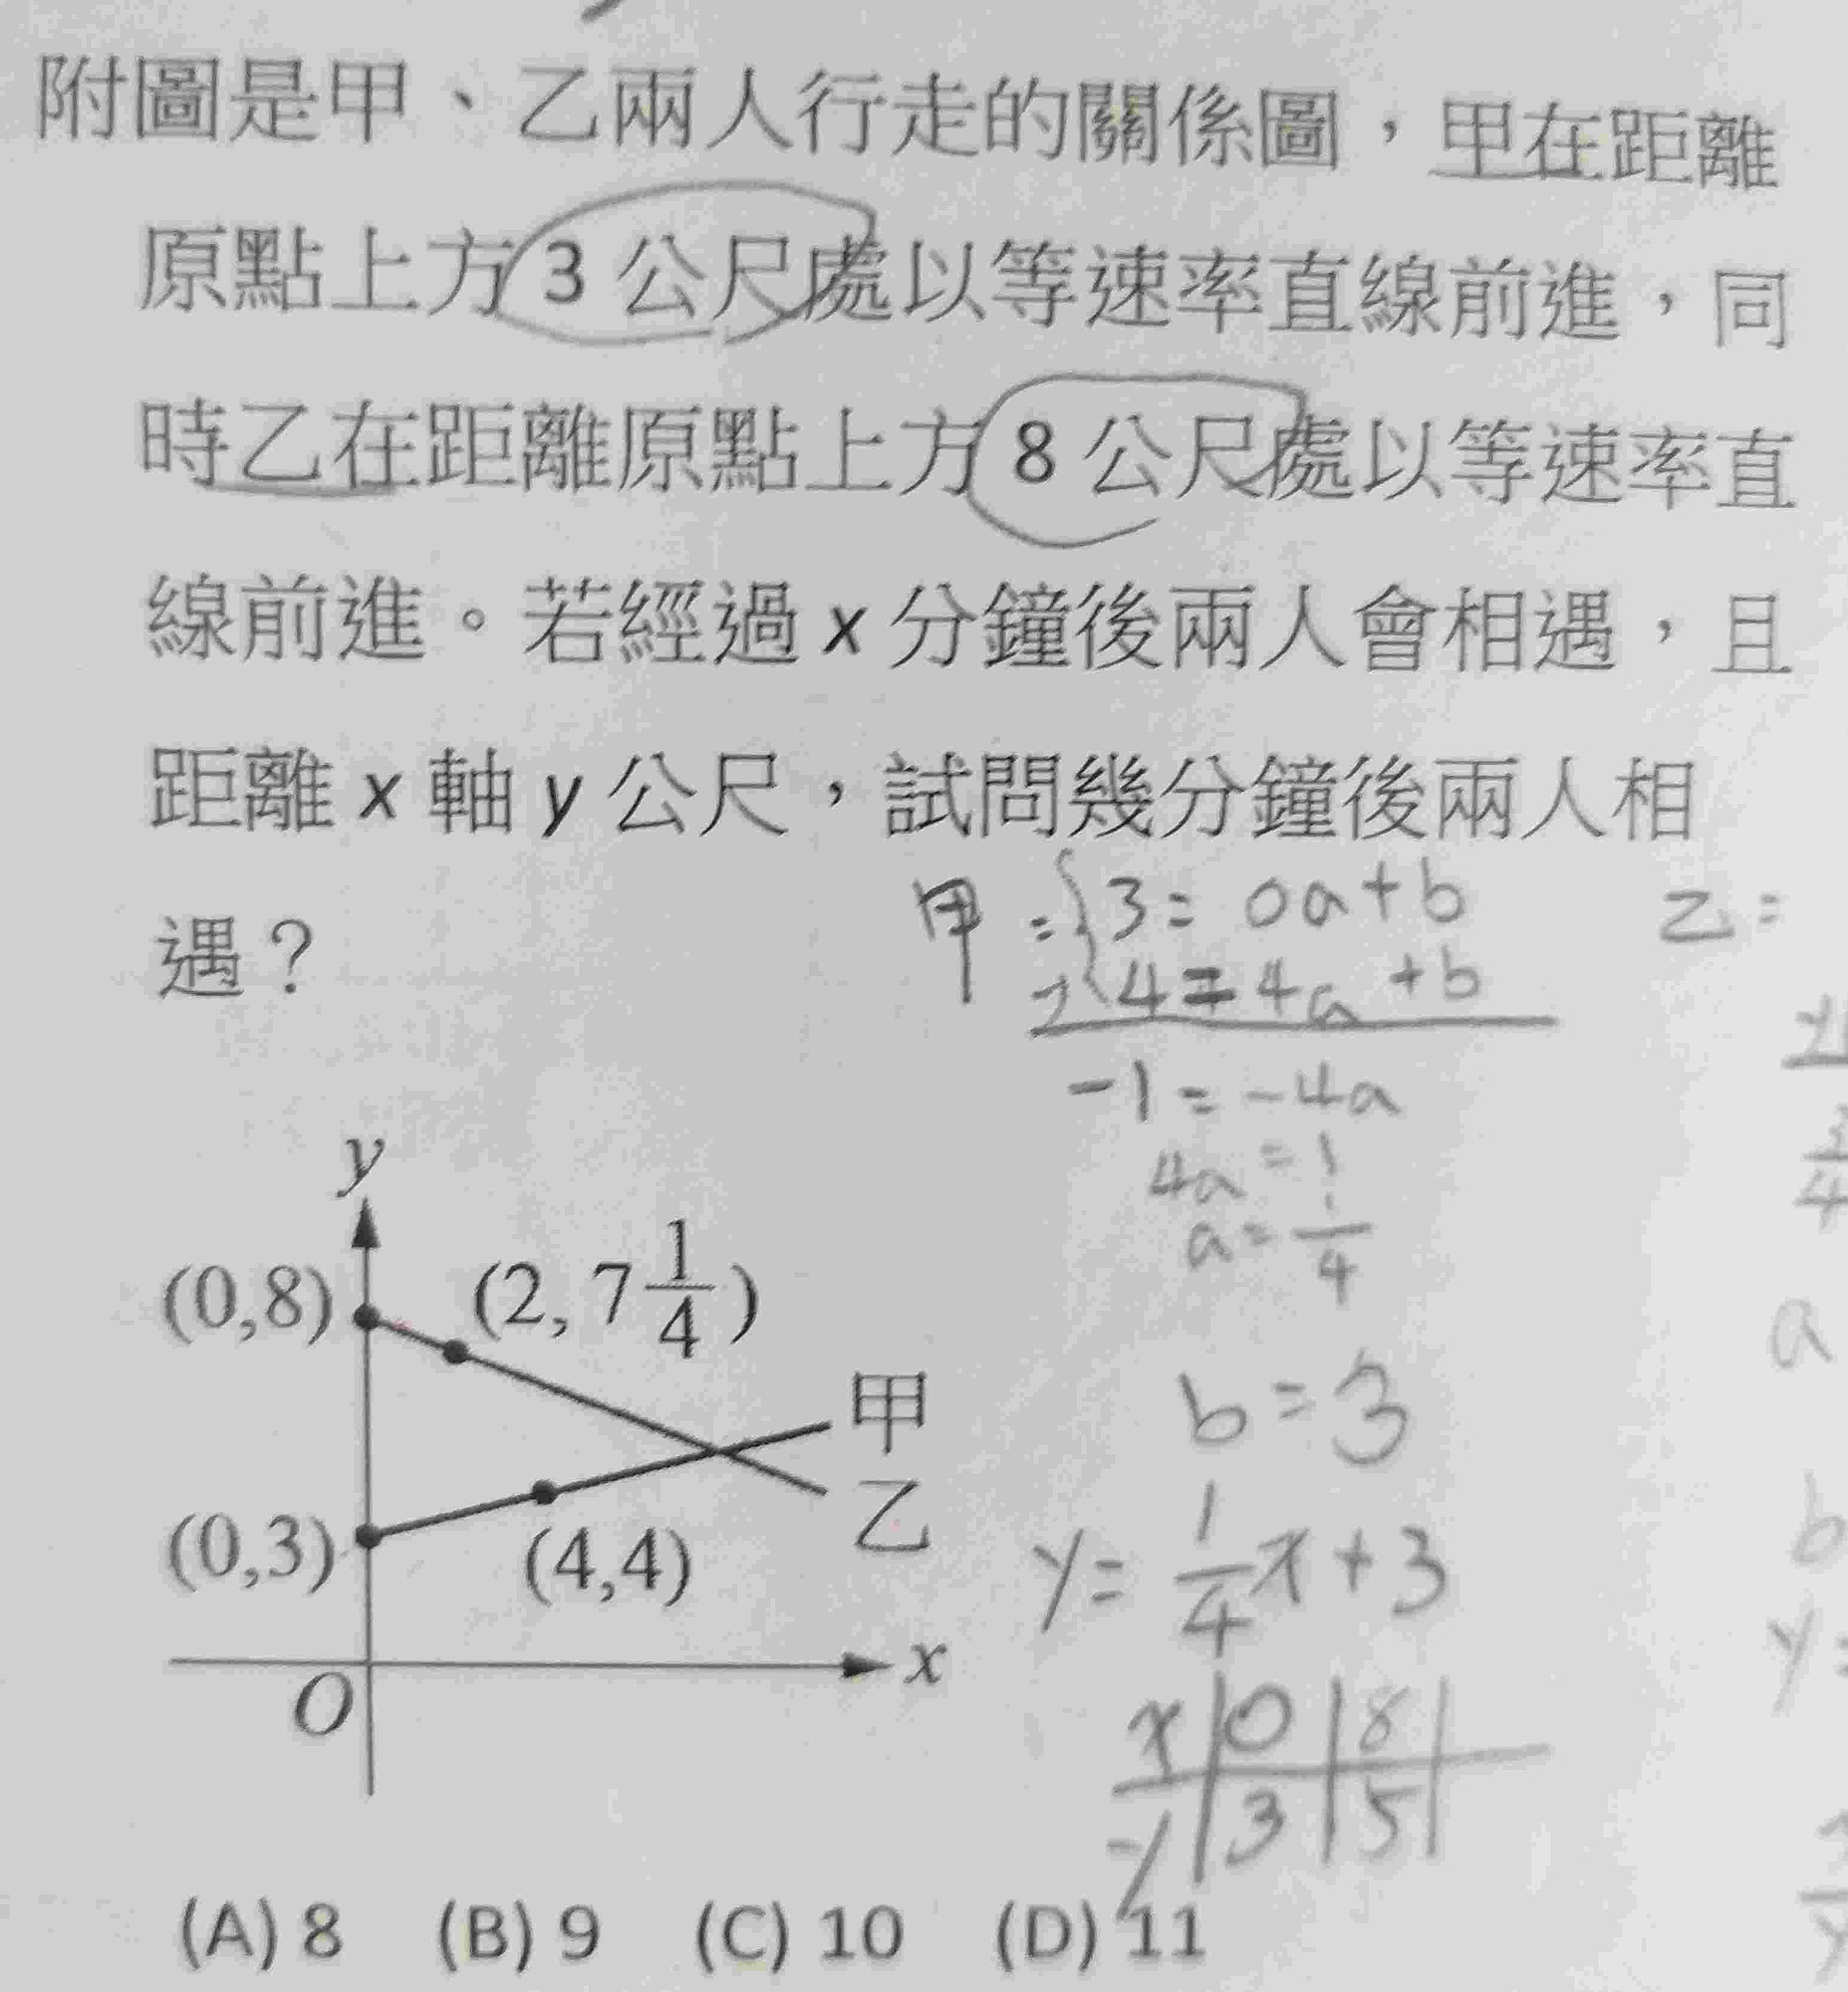 附圖是甲、乙兩人行走的關係圖，甲在距離
原點上方 3 公尺處以等速率直線前進，同
時乙在距離原點上方 8 公尺處以等速率直
線前進。若經過 x 分鐘後兩人會相遇，且
距離 x 軸 y 公尺，試問幾分鐘後兩人相
遇？
甲 = { 3 = 0a + b
-) 4 = 4a + b
-1 = -4a
4a = 1
a = 1/4
b = 3
y = 1/4 x + 3
x | 0 | 8 |
y | 3 | 5 |
乙 =
3/4
a
b
y =
y
(0,8)
(2, 7 1/4)
甲
乙
(0,3)
(4,4)
x
O
(A) 8 (B) 9 (C) 10 (D) 11